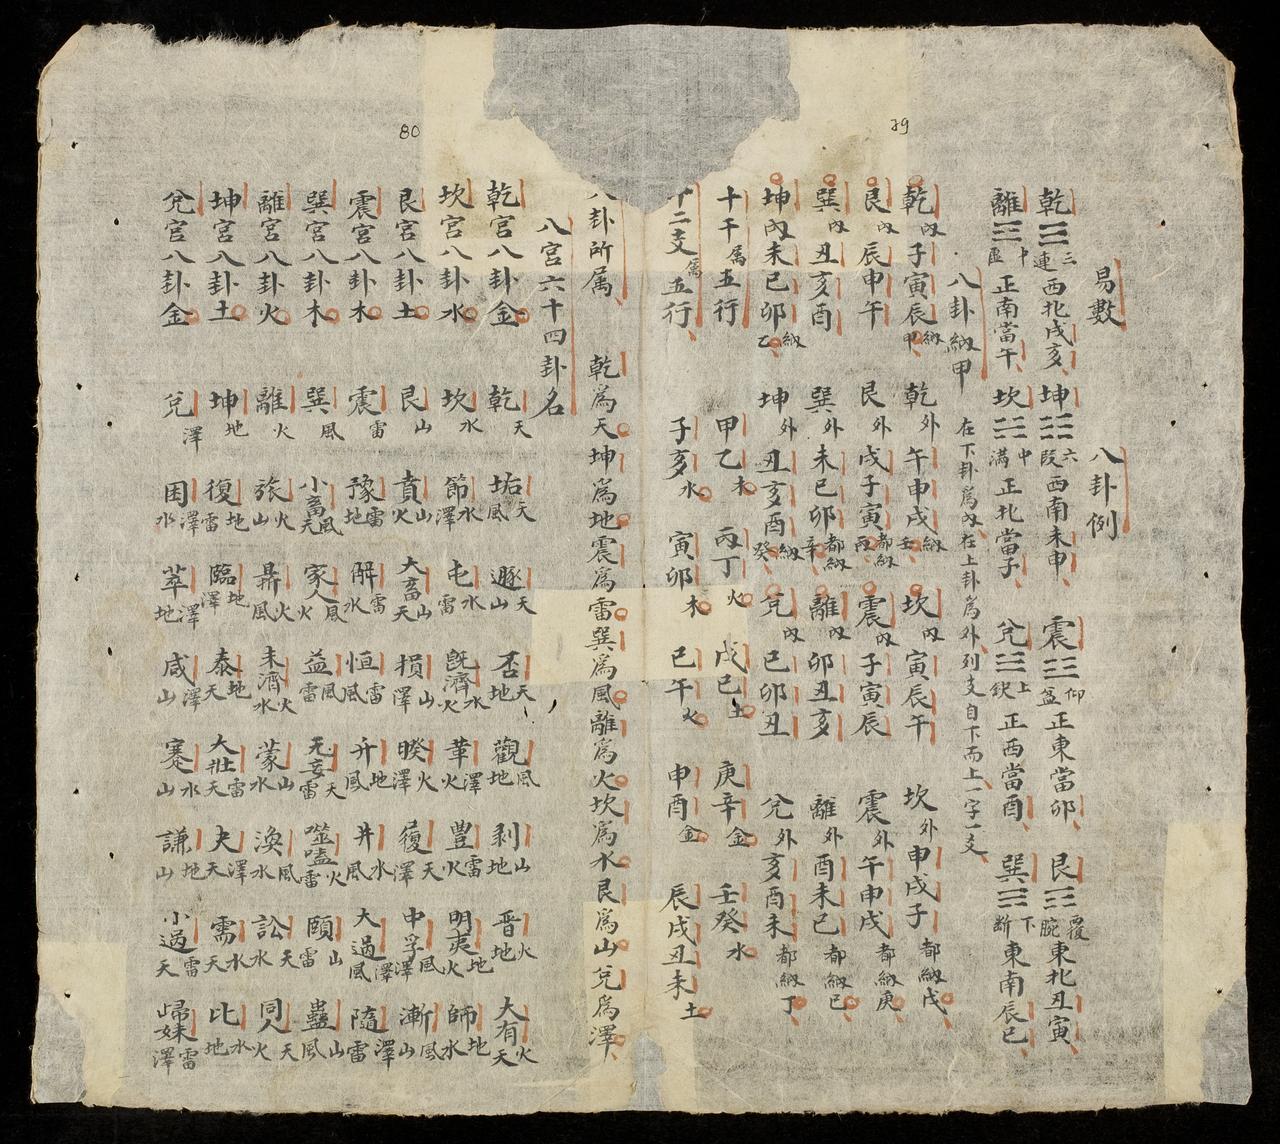 79
易數　八卦例
乾☰三連西北戌亥　坤☷六段西南未申　震☳仰盆正東當卯　艮☶覆腕東北丑寅
離☲中虛正南當午　坎☵中滿正北當子　兌☱上缺正西當酉　巽☴下斷東南辰巳
八卦納甲　在下卦爲內在上卦爲外列支自下而上一字一支
乾內子寅辰納甲　乾外午申戌納壬　坎內寅辰午　坎外申戌子都納戊
艮內辰申午　艮外戌子寅都納丙　震內子寅辰　震外午申戌都納庚
巽內丑亥酉　巽外未巳卯都納辛　離內卯丑亥　離外酉未巳都納己
坤內未巳卯納乙　坤外丑亥酉納癸　兌內巳卯丑　兌外亥酉未都納丁
十干属五行　甲乙木　丙丁火　戊己土　庚辛金　壬癸水
十二支属五行　子亥水　寅卯木　巳午火　申酉金　辰戌丑未土
80
八卦所属　乾爲天坤爲地震爲雷巽爲風離爲火坎爲水艮爲山兌爲澤
八宮六十四卦名
乾宮八卦金　乾天　垢天風　遯天山　否天地　觀風地　剥山地　晉火地　大有火天
坎宮八卦水　坎水　節水澤　屯水雷　旣濟水火　革澤火　豊雷火　明夷地火　師地水
艮宮八卦土　艮山　賁山火　大畜山天　損山澤　暌火澤　履天澤　中孚風澤　漸風山
震宮八卦木　震雷　豫雷地　解雷水　恒雷風　升地風　井水風　大過澤風　隨澤雷
巽宮八卦木　巽風　小畜風天　家人風火　益風雷　无妄天雷　噬嗑火雷　頤山雷　蠱山風
離宮八卦火　離火　旅火山　鼎火風　未濟火水　蒙山水　渙風水　訟天水　同人天火
坤宮八卦土　坤地　復地雷　臨地澤　泰地天　大壯雷天　夬澤天　需水天　比水地
兌宮八卦金　兌澤　困澤水　萃澤地　咸澤山　蹇水山　謙地山　小過雷天　歸妹雷澤